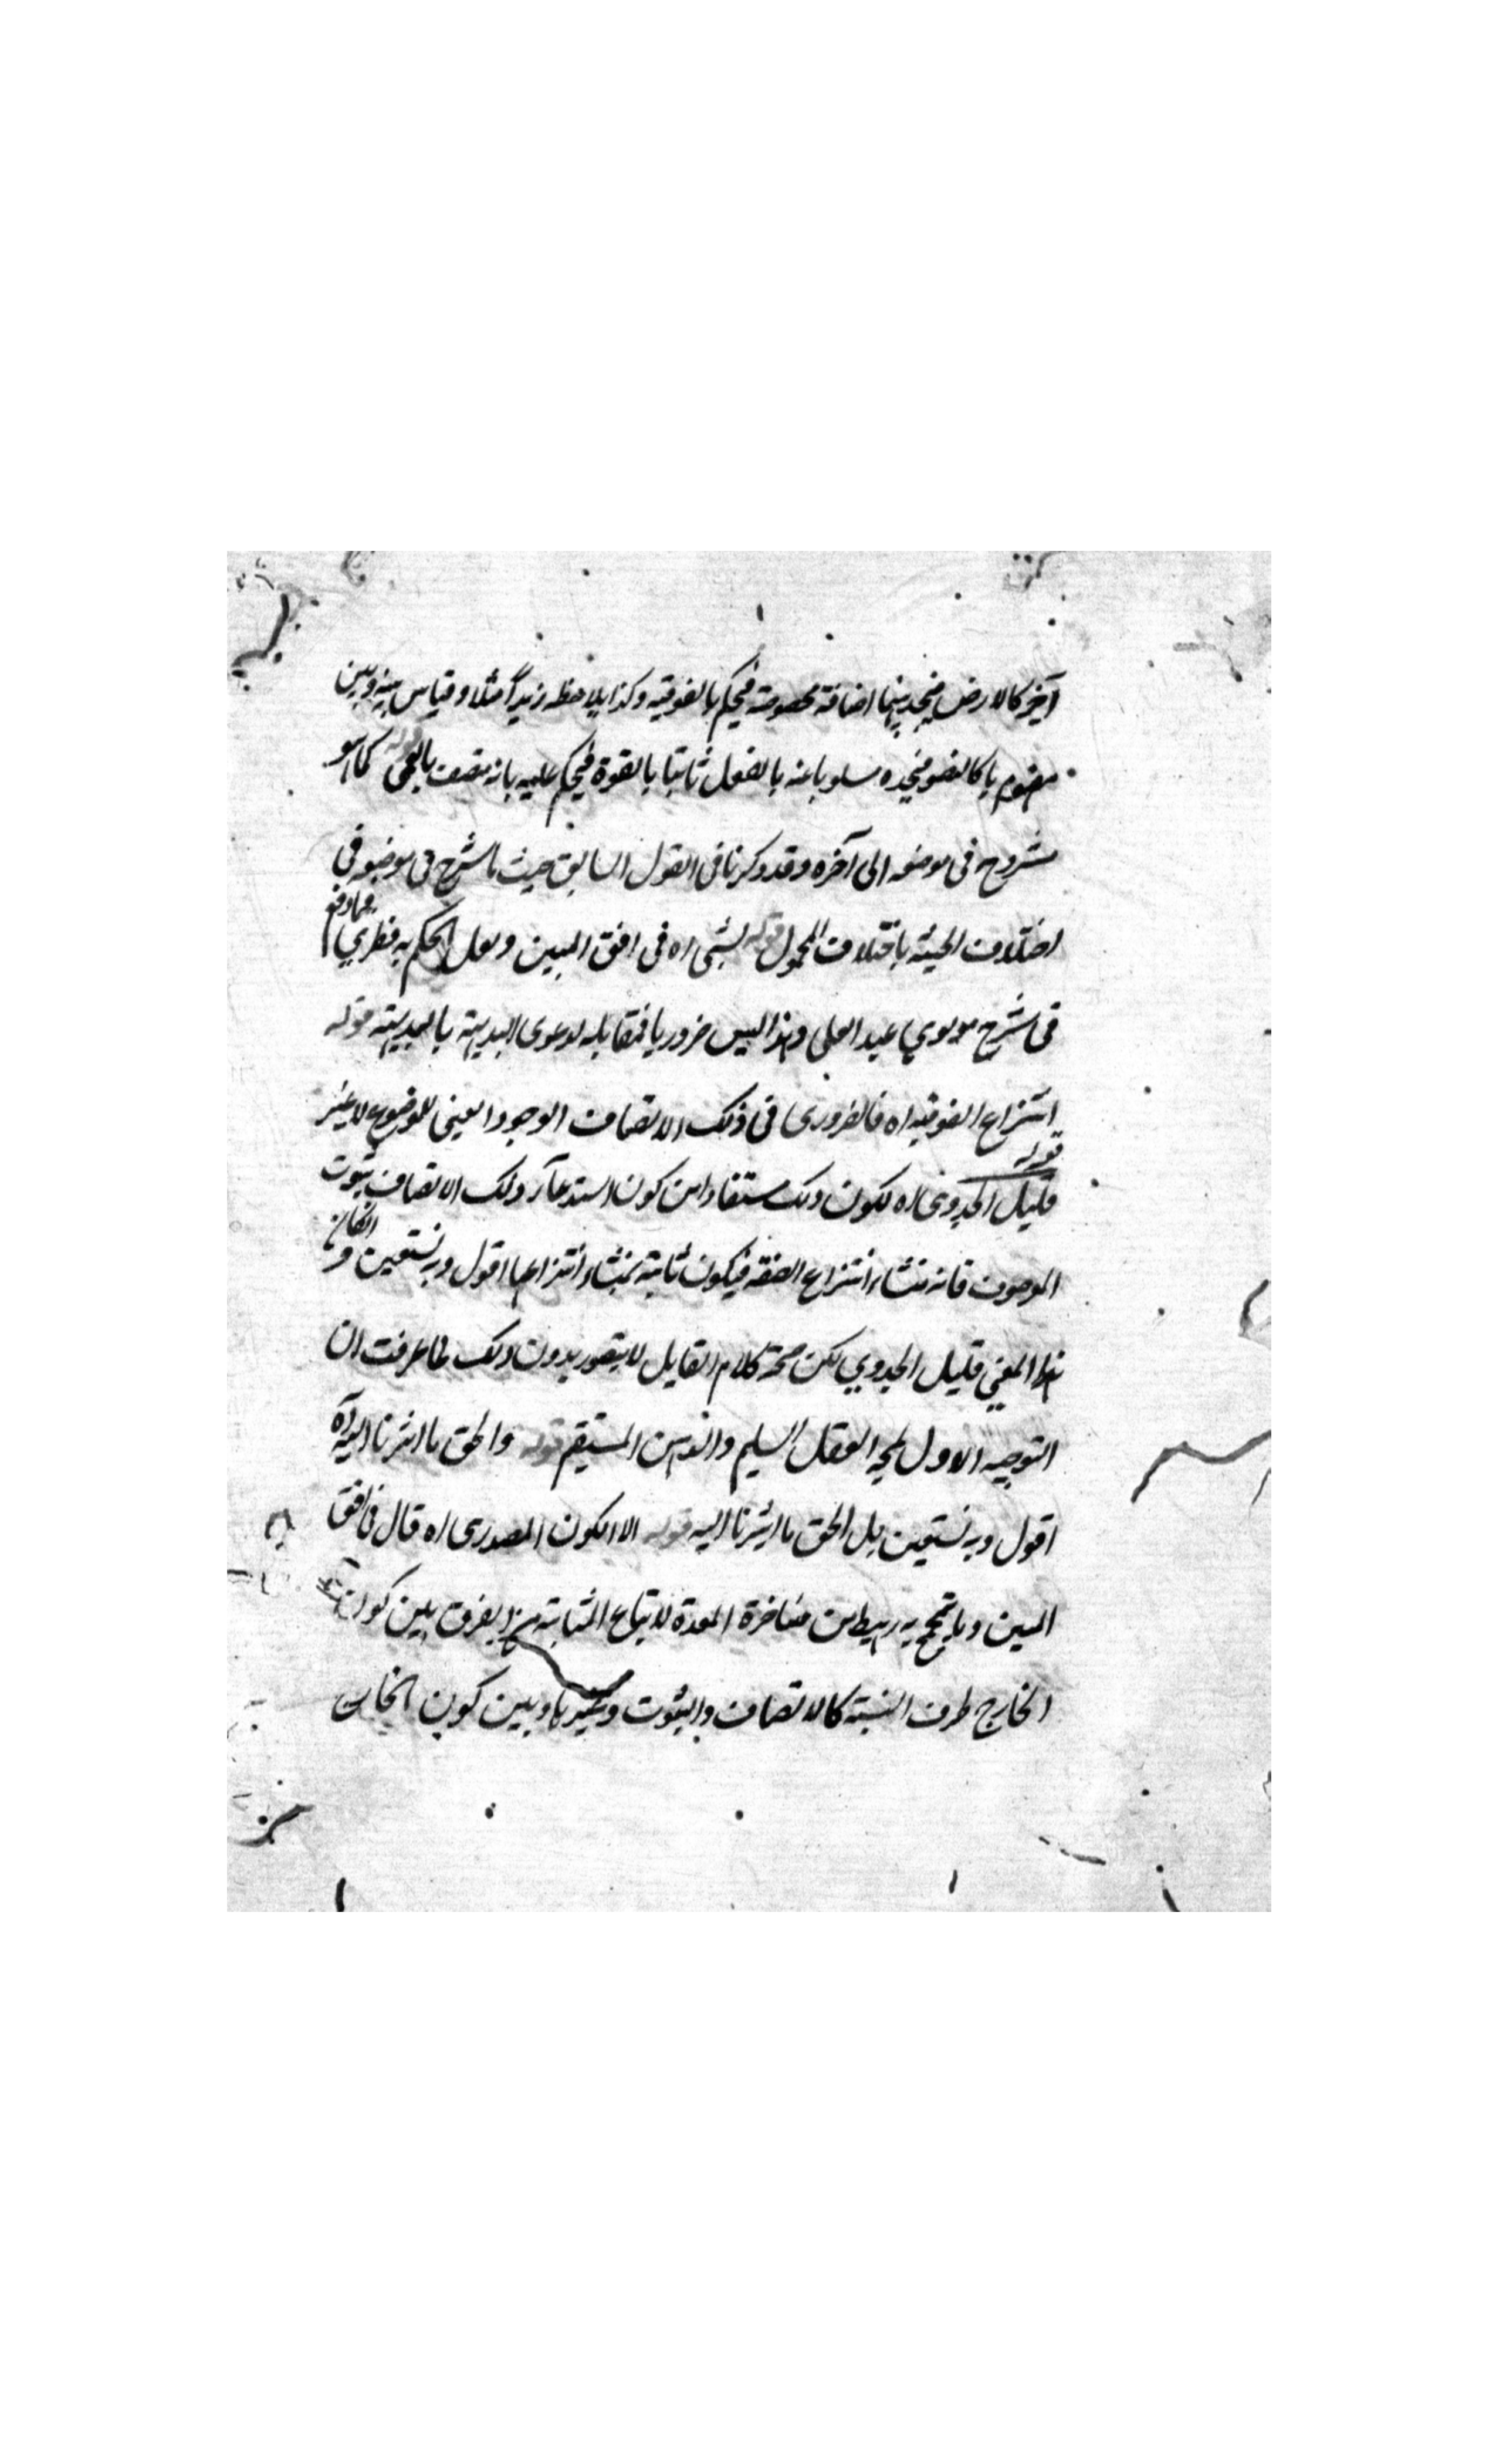 آخر كالارض فيجد بينهما اضافة مخصوصة فيحكم بالفوقيه وكذا يلاحظ زيداً مثلا وقياس بينه وبين
مفهوم ما كالبصر فيجده مسلوبا عنه بالفعل ثابتا بالقوة فيحكم عليه بانه متصف بالعمى قوله كما هو
مشروح فى موضعه الى آخره وقد ذكرنا فى القول السابق حيث ما شرح فى موضعه فى
اختلاف الحيثية باختلاف المحمول قوله اه فى افق المبين ولعل الحكم به فطري فما وقع
فى شرح مولوي عبد العلى وهذا ليس ضروريا فمقابله لدعوى البديهة بالبديهة قوله
انتزاع الفوقيه اه فالضرورى فى ذلك الاتصاف الوجود العينى للموضوع لا غير
قوله
قليل الجدوى اه لكون ذلك مستفادا من كون استدعاء ذلك الاتصاف ثبوت
الموصوف فانه منشاء انتزاع الصفة فيكون ثابتة بمنشاء انتزاعها اقول وبه نستعين و انكان
هذا المعنى قليل الجدوي لكن صحة كلام القايل لا يتصور بدون ذلك لما عرفت ان
التوجيه الاول يمجه العقل السليم والذهن المستقيم قوله والحق ما اشرنا اليه اه
اقول وبه نستعين بل الحق ما اشرنا اليه قوله الا الكون المصدرى اه قال فى افق
المبين وما تبجح به رهيط من متاخرة المعدة لاتباع المشائية من الفرق بين كون
الخارج ظرف النسبة كالاتصاف والثبوت وغيرها وبين كون الخارج